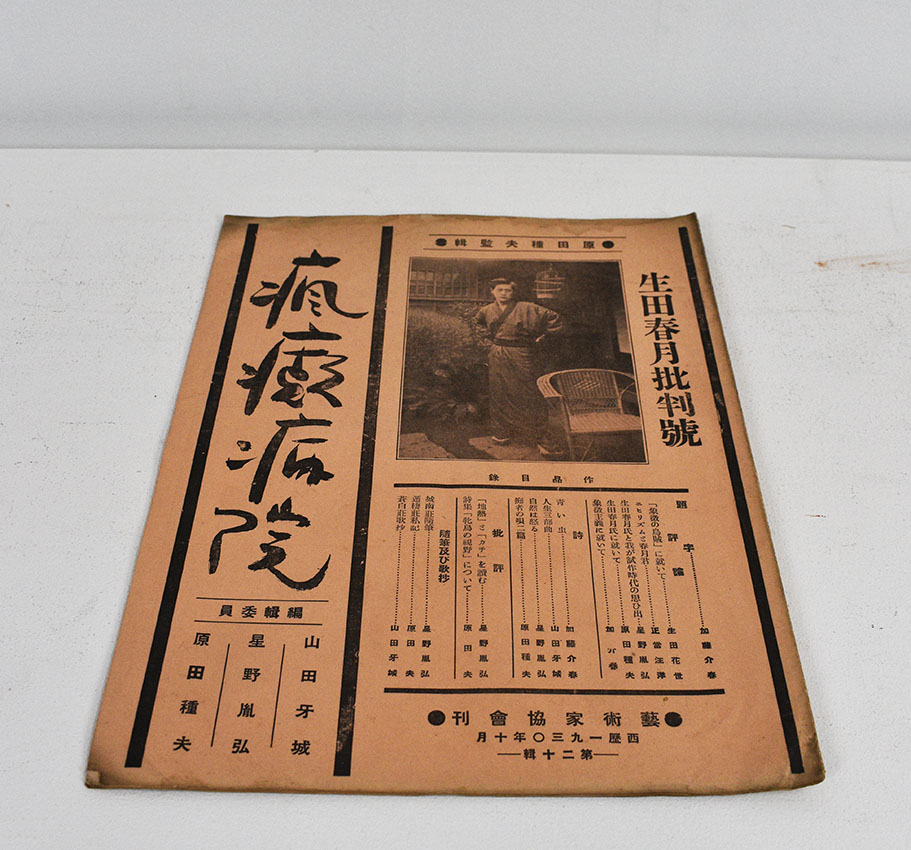 原田種夫監輯
生田春月批判號
作品目錄
題字……加藤介春
評論
「象徴の烏賊」に就いて……生田花世
ニヒリズムと春月君……正富汪洋
生田春月氏と我が試作時代の思ひ出…星野胤弘
生田春月氏に就いて……原田種夫
象徴主義に就いて……加
詩
青い虫……加藤介春
人生三部曲……山田牙城
自然は怒る……星野胤弘
の唄二篇……原田種夫
批評
「地熱」と「カチ」を讀む……星野胤弘
詩集「牝鳥の視野」について……原田夫
隨筆及び歌抄
城南莊隨筆……星野胤弘
莊私記……原田夫
蒼白莊歌抄……山田牙城
藝術家協會刊
西歴一九三〇年十月
第二十輯
瘋癲病院
編輯委員
山田牙城
星野胤弘
原田種夫